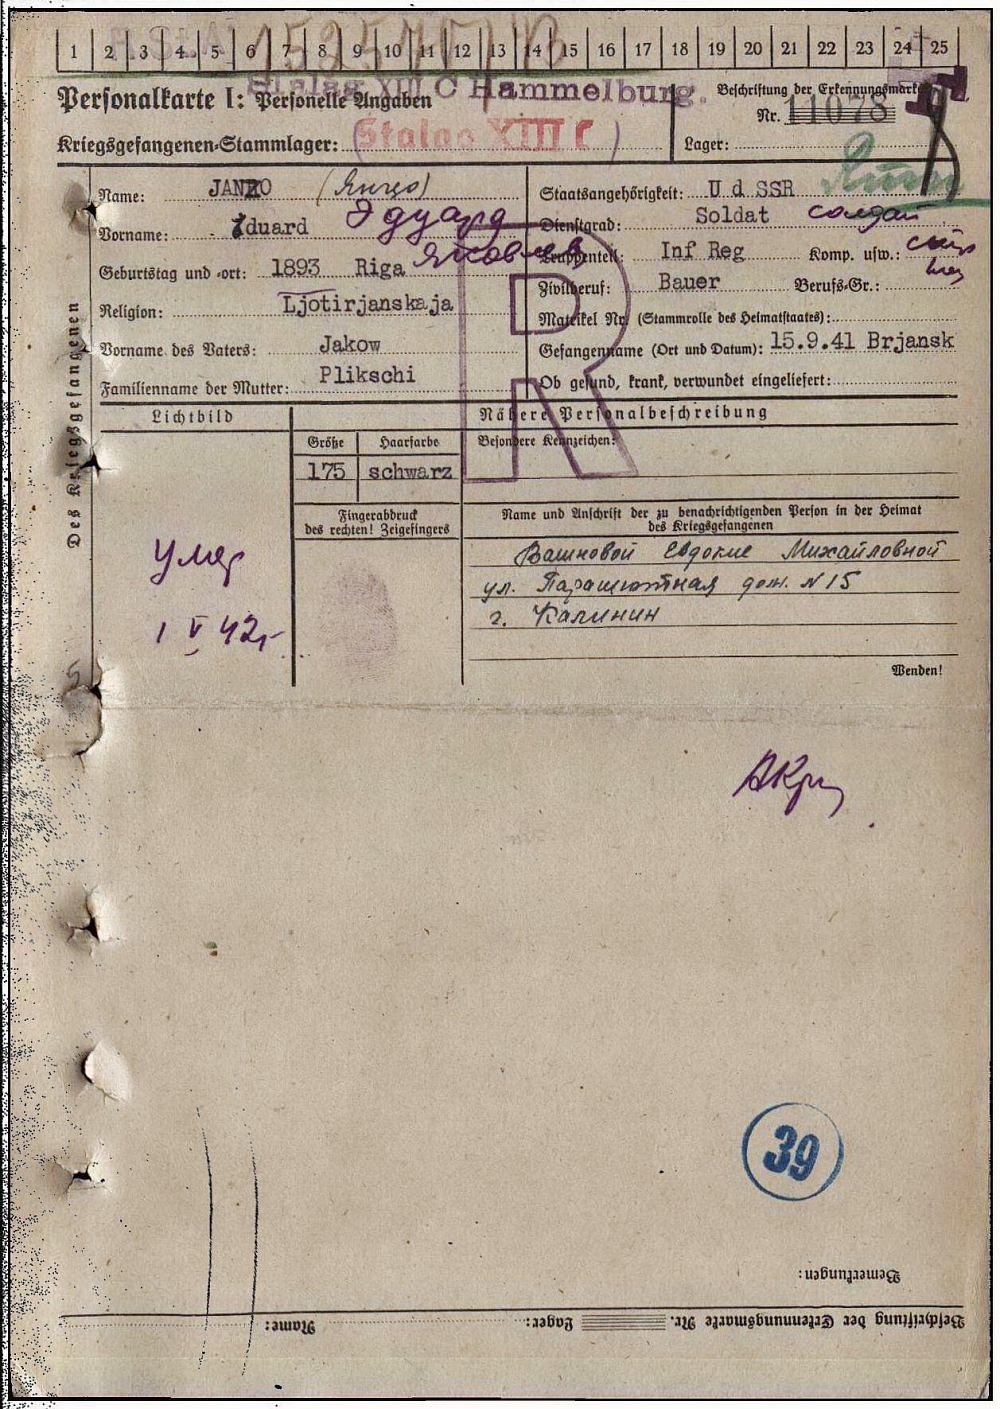 1 2 3 4 5 6 7 8 9 10 11 12 13 14 15 16 17 18 19 20 21 22 23 24 25
Stalag XIII C Hammelburg.
Personalkarte I: Personelle Angaben
Beschriftung der Erkennungsmarke
Nr. 11078
Kriegsgefangenen-Stammlager: Stalag XIII C
Lager:
Des Kriegsgefangenen
Name: JANZO (Янцо)
Staatsangehörigkeit: U d SSR
Vorname: Eduard Эдуард
Dienstgrad: Soldat солдат
Яковлев
Geburtstag und -ort: 1893 Riga
Truppenteil: Inf Reg Komp. usw.:
Zivilberuf: Bauer Berufs-Gr.:
Religion: Ljotirjanskaja
Matrikel Nr. (Stammrolle des Heimatstaates):
Vorname des Vaters: Jakow
Gefangenname (Ort und Datum): 15.9.41 Brjansk
Familienname der Mutter: Plikschi
Ob gesund, krank, verwundet eingeliefert:
R
Lichtbild
Nähere Personalbeschreibung
Größe Haarfarbe Besondere Kennzeichen:
175 schwarz
Fingerabdruck
des rechten! Zeigefingers
Name und Anschrift der zu benachrichtigenden Person in der Heimat
des Kriegsgefangenen
Вашновой Евдокие Михайловной
ул. Парашютная дом. N 15
г. Калинин
умер
1 V 42
Wenden!
39
Bemerkungen:
Beschriftung der Erkennungsmarke Nr. Lager: Name: